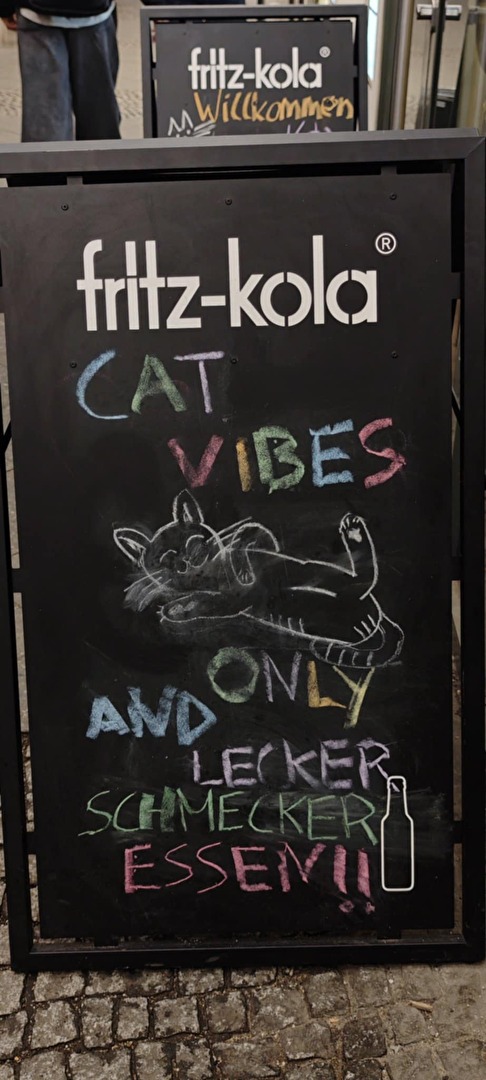 fritz-kola®
Willkommen
fritz-kola®
CAT
VIBES
ONLY
AND
LECKER
SCHMECKER
ESSEN!!